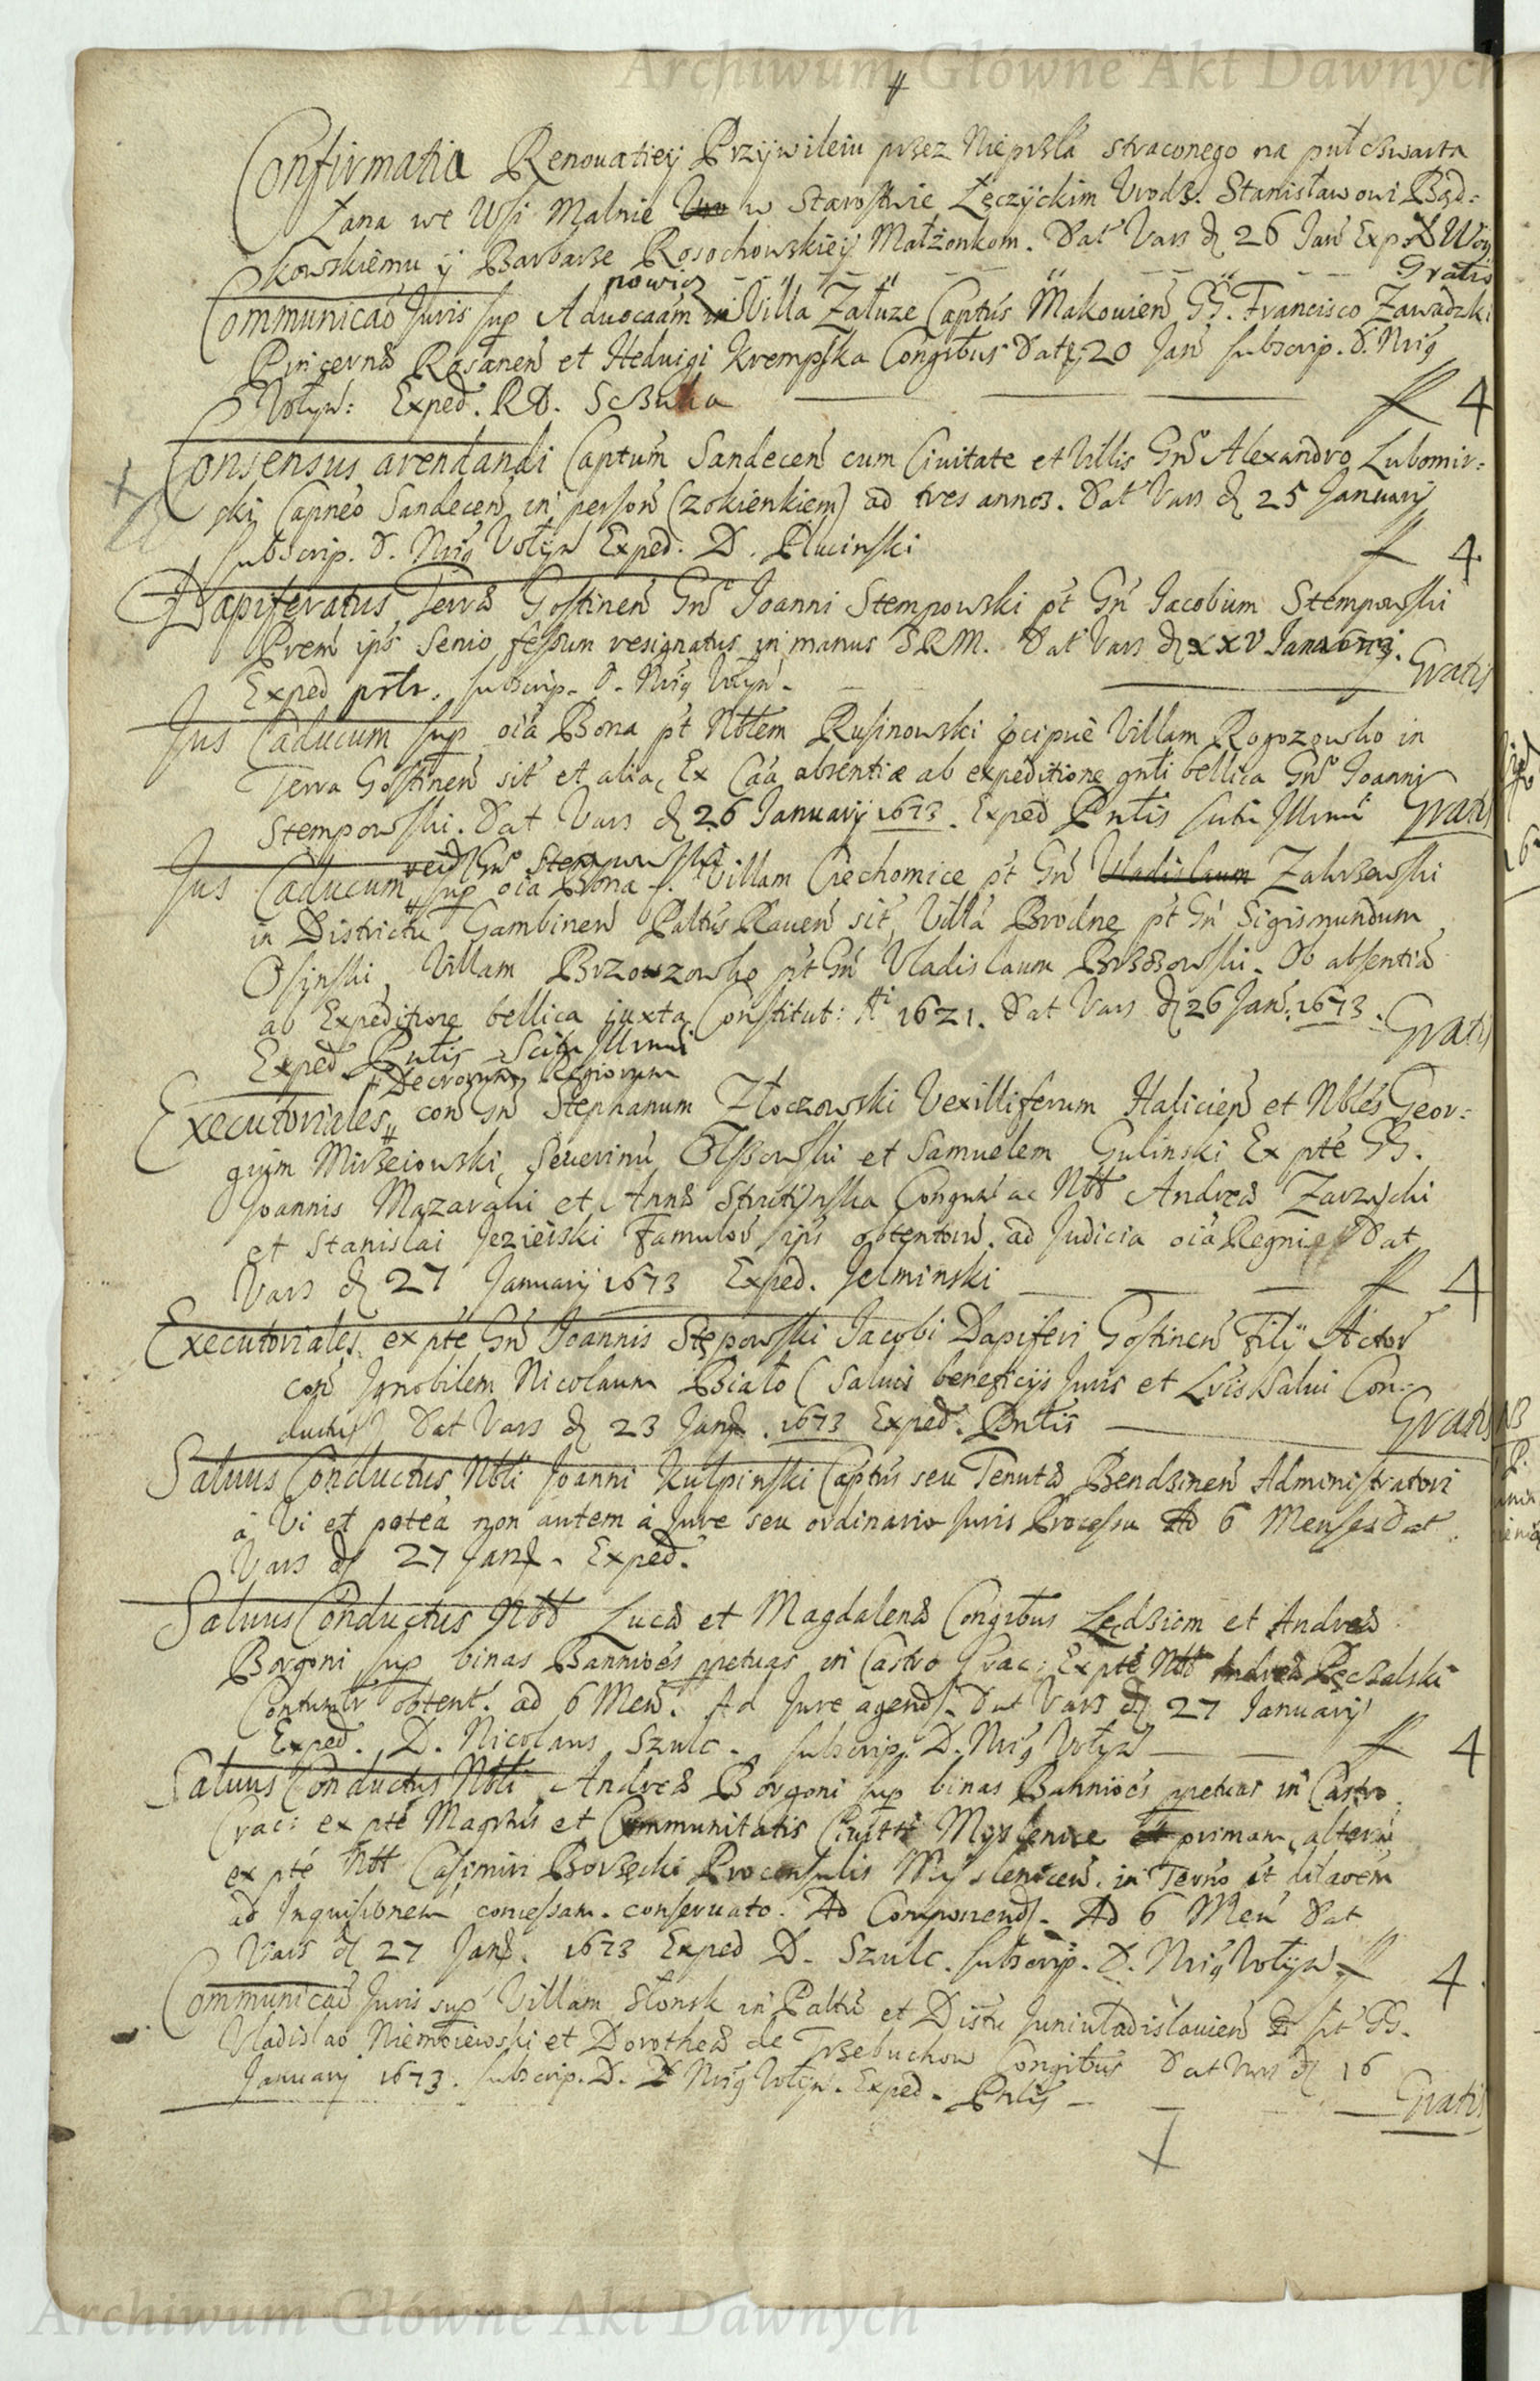 Archiwum Główne Akt Dawnych
Confirmatia Renouatiey Przywileiu przez Nieprzła straconego na puł czwarta
Łana we Wsi Malnie w Starostwie Łęczyckim Vrodz. Stanisławowi Bąd=
kowskiemu y Barbarze Rosochowskiey Małżonkom. Dat Vars d 26 Jan Exp
Gratis
Communicaō Juris sup Aduocaām in Villa Załuze Captús Makouien GG. Francisco Zawadzki
Pincernæ Rosanen et Heduigi Krempska Congibus Dat 20 Jan subscrip. D. Nrig
Wołyn: Exped. RD. Sczuka ff 4
Consensus arendandi Captum Sandecen cum Ciuitate et Villis Gn̄o Alexandro Lubomir=
ski Capneo Sandecen in person (zokienkiem) ad tres annos. Dat Vars d 25 January
subscrip. D. Nrig Wołyn Exped. D. Plucinski ff 4.
Dapiferatus Terræ Gostinen Gn̄o Joanni Stempowski pt Gn Jacobum Stempowski
Prem ips senio fessum resignatus in manus SRM. Dat Vars d XXV
Exped prtr. subscrip. D. Nrig Wołyn. Gratis
Jus Caducum sup oia Bona pt Nblem Rusinowski pcipue Villam Rogozowsko in
Terra Gostinen sit et alia, Ex Caa absentiæ ab expeditione gnli bellica Gn̄o Joanni
Stempowski. Dat Vars d 26 January 1673. Exped Pntis Gratis
Gn̄o Stempowski
Jus Caducum sup oia Bona Villam Ciechomice pt Gn Vladislaum Zakrzewski
in Districtu Gambinen Paltús Rauen sit, Villa Brodne pt Gn Sigismundum
Osinski, Villam Brzozowsko pt Gn Vladislaum Brzozowski. Ob absentiā
ab Expeditione bellica juxta Constitut: Ai 1621. Dat Vars d 26 Jan. 1673. Gratis
Exped Pntis
Decretorum Regiorum
Executoriales con Gn Stephanum Złoczowski Vexilliferum Halicien et Nbles Geor=
gium Mirzeiowski, Seuerinū Olszowski et Samuelem Gulinski Ex pte GG.
Joannis Mazaraki et Annæ Strutynska Congum ac Nbb Andreæ Zarzycki
et Stanislai Jezierski Famulor ips obtentorū. ad Judicia oia Regni Dat
Vars d 27 January 1673 Exped. Jelminski ff 4
Executoriales ex pte Gn Joannis Stępowski Jacobi Dapiferi Gostinen Filÿ Actor
con Ignobilem Nicolaum Biało (Saluis beneficijs Juris et Lris Salui Con=
ductus) Dat Vars d 23 Jan. 1673 Exped. Pntis Gratis
Saluus Conductus Nbli Joanni Kulpinski Captús seu Tenutæ Bendzinen Administratori
à Vi et potea non autem à Jure seu ordinario Juris Processu Ad 6 Menses Dat
Vars d 27 Jan. Exped.
Saluus Conductus Nbb Lucæ et Magdalenæ Congibus Lędziom et Andreæ
Borgoni sup binas Bannioes ppetuas in Castro Crac: Ex pte Nbb Andreæ Pęczalski
Contumtr obtent. ad 6 Men. Ad Jure agend. Dat Vars d 27 January
Exped. D. Nicolaus Szulc. subscrip. D. Nrig Wołyn ff 4
Saluus Conductus Nbli Andreæ Borgoni sup binas Bannioes ppetuas in Castro
Crac: ex pte Magrtus et Communitatis Ciuitt Myslenice primam, alterā
ex pte Nbb Casimiri Borzęcki Proconsulis Myslenicen. in Termo
ad Inquisitionem concessam. conseruato. Ad Componend. Ad 6 Men Dat
Vars d 27 Jan. 1673 Exped D. Szulc. subscrip. D. Nrig Wołyn ff 4.
Communicaō Juris sup Villam Słonsk in Paltu et Distu Juniuladislauien sit GG.
Vladislao Niemoiewski et Dorotheæ de Trzebuchow Congibus Dat Vars d 16
January 1673. subscrip. D. Nrig Wołyn. Exped. Pntis Gratis
Archiwum Główne Akt Dawnych